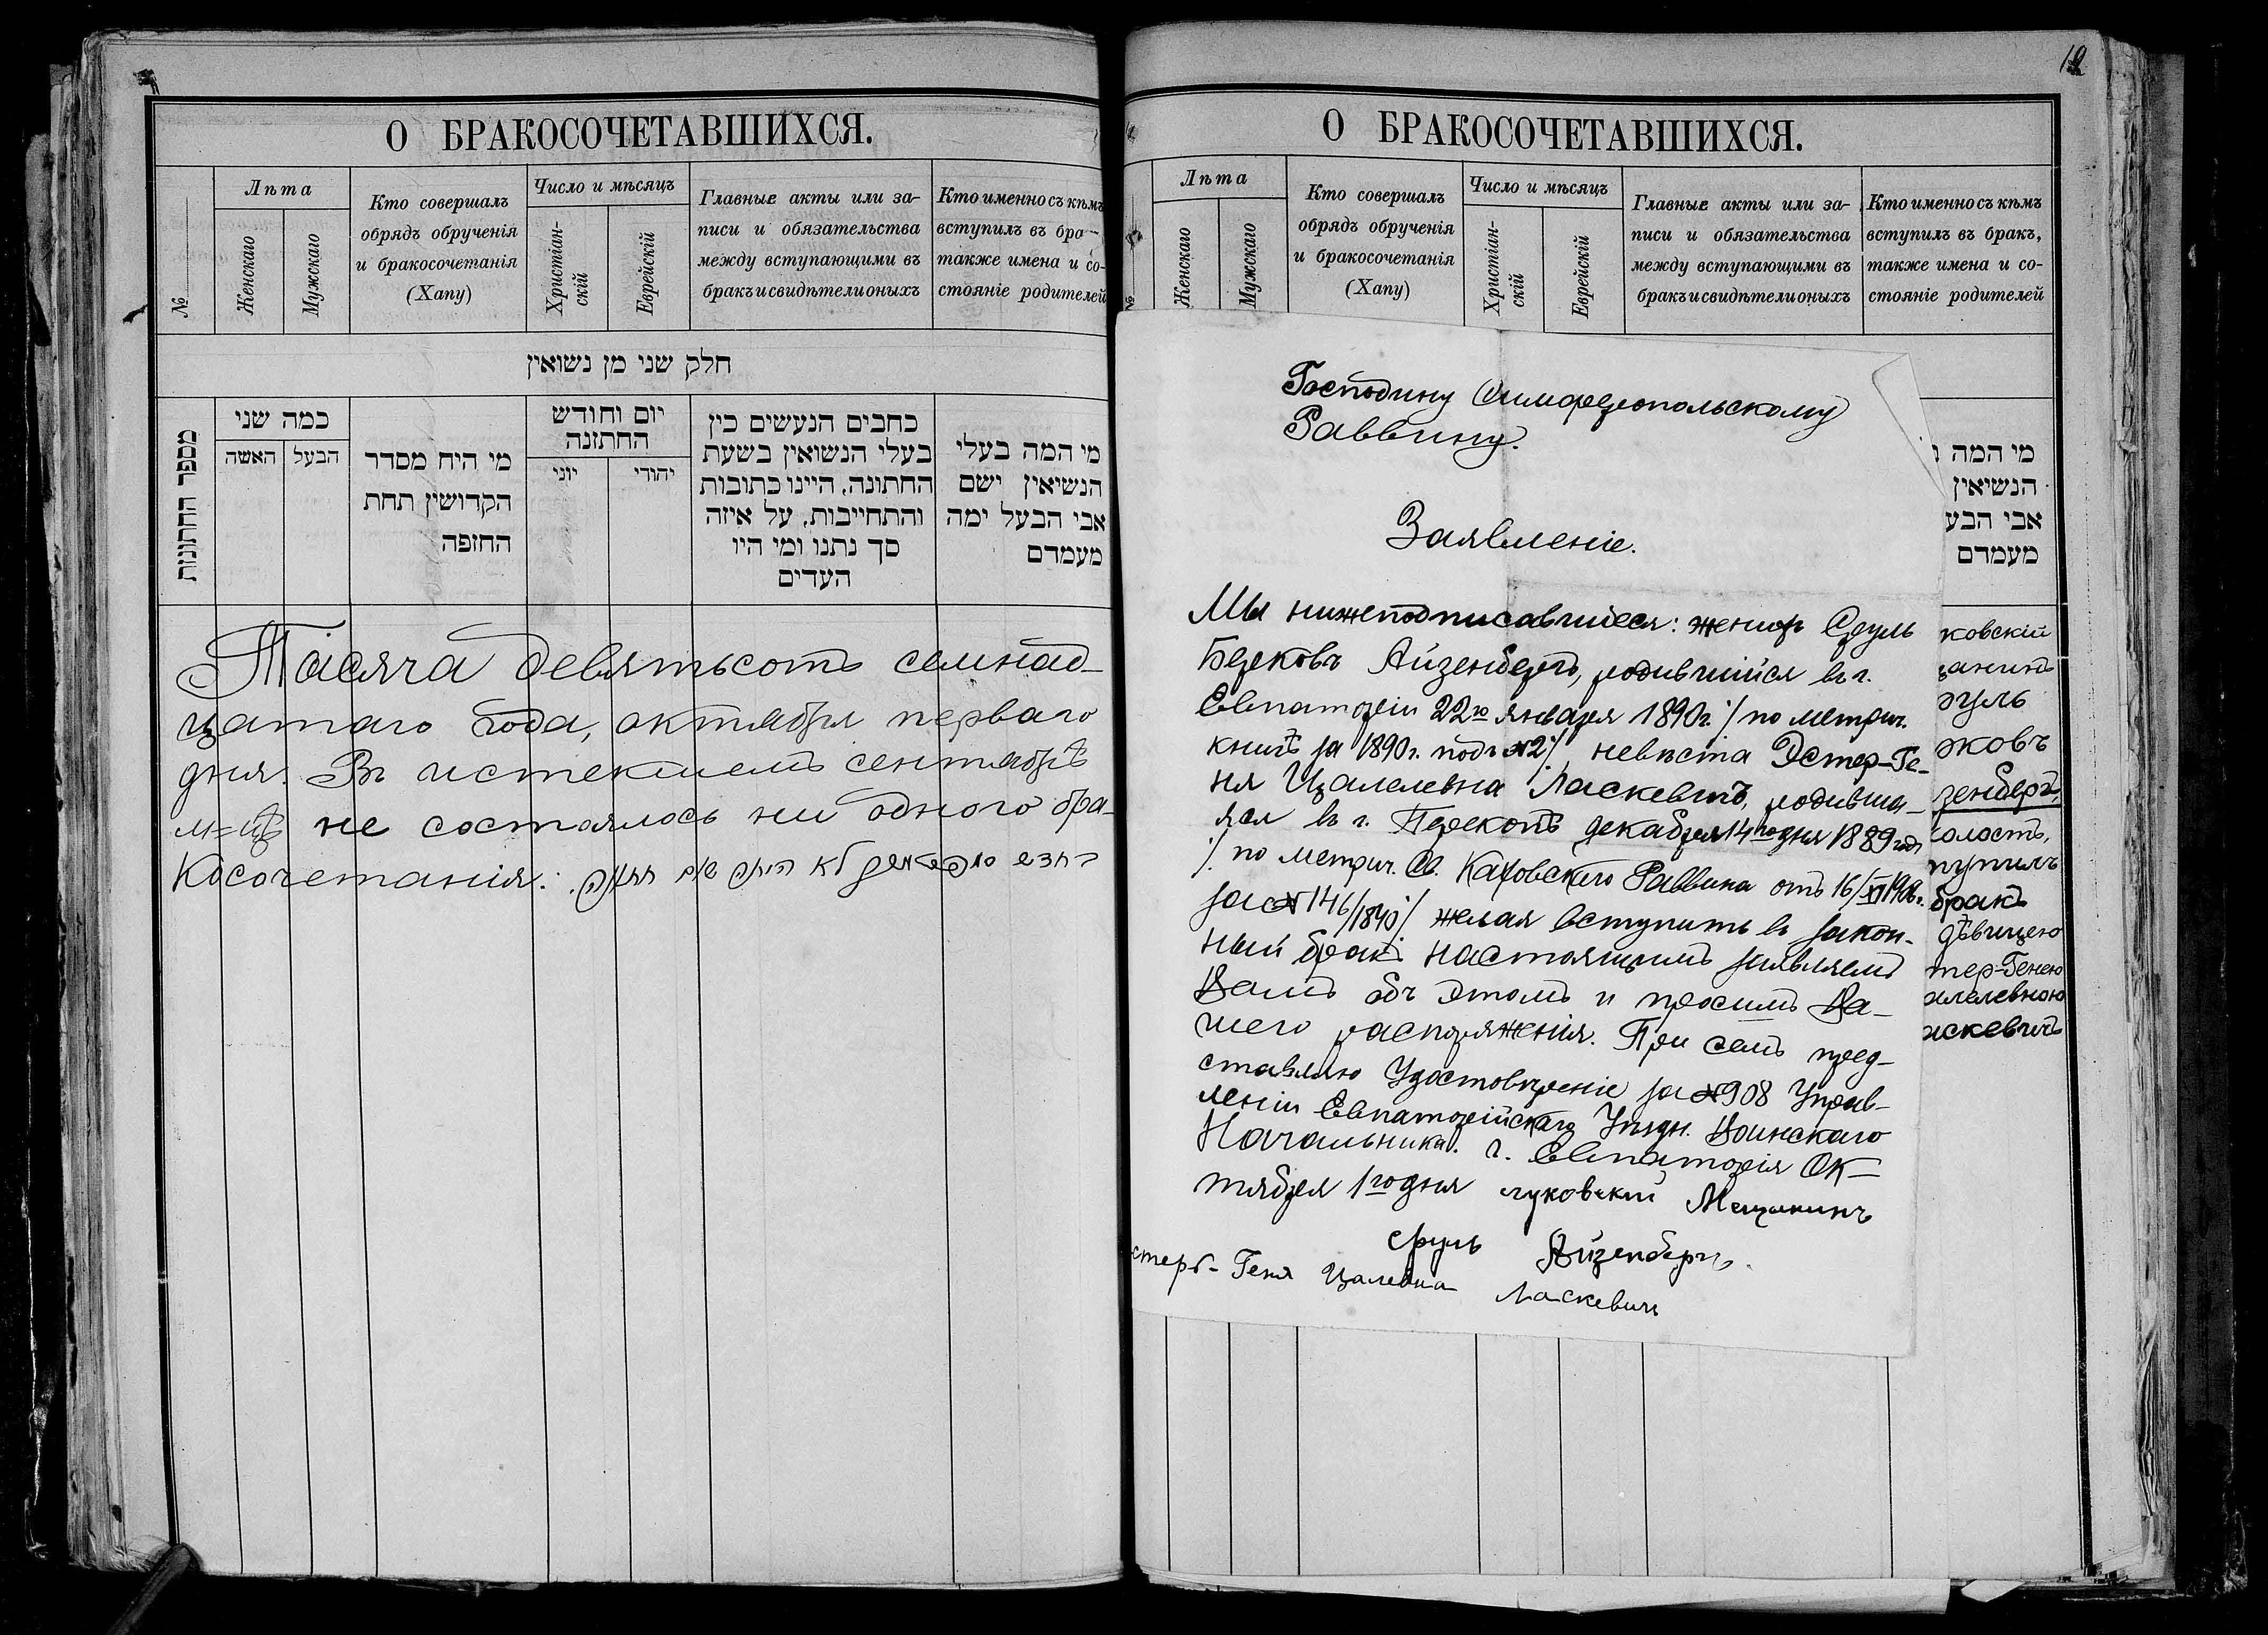 О БРАКОСОЧЕТАВШИХСЯ.
№
Лѣта
Женскаго
Мужскаго
Кто совершалъ
обрядъ обрученія
и бракосочетанія
(Хапу)
Число и мѣсяцъ
Христіан-
скій
Еврейскій
Главные акты или за-
писи и обязательства
между вступающими въ
бракъ и свидѣтели оныхъ
Кто именно съ кѣмъ
вступилъ въ бра-
также имена и со-
стояніе родителей
חלק שני מן נשואין
מספר החתונות
כמה שני
הבעל
האשה
מי היח מסדר
הקדושין תחת
החופה
יום וחודש
החתונה
יוני
יהודי
כתבים הנעשים בין
בעלי הנשואין בשעת
החתונה, היינו כתובות
והתחייבות, על איזה
סך נתנו ומי היו
העדים
מי המה בעלי
הנשיאין ישם
אבי הבעל ימה
מעמדם
Тысяча девятьсотъ семнад-
цатаго года, октября перваго
дня. Въ истекшемъ сентябрѣ
м-цѣ не состоялось ни одного бра-
косочетанія.
12
О БРАКОСОЧЕТАВШИХСЯ.
№
Лѣта
Женскаго
Мужскаго
Кто совершалъ
обрядъ обрученія
и бракосочетанія
(Хапу)
Число и мѣсяцъ
Христіан-
скій
Еврейскій
Главные акты или за-
писи и обязательства
между вступающими въ
бракъ и свидѣтели оныхъ
Кто именно съ кѣмъ
вступилъ въ бракъ,
также имена и со-
стояніе родителей
מי המה
הנשיאין
אבי הבע
מעמדם
Господину Симферопольскому
Раввину.
Заявленіе.
Мы нижеподписавшіеся: женихъ Сруль
Берковъ Айзенбергъ, родившійся въ г.
Евпаторіи 22го января 1890г. /по метрич.
книгѣ за 1890г. подъ №2/, невѣста Эстер-Ге-
ня Цалелевна Ласкевичъ, родивша-
яся въ г. Перекопѣ декабря 14го дня 1889 года
/по метрич. Св. Каховского Раввина отъ 16/XI 1906г.
за №146/1840/ желая вступить въ закон-
ный бракъ настоящимъ заявляемъ
Вамъ объ этомъ и просимъ Ва-
шего распоряженія. При семъ пред-
ставляю Удостовѣреніе за №908 Управ-
леніи Евпаторійскаго Уѣздн. Воинскаго
Начальника. г. Евпаторія Ок-
тября 1го дня луковскій Мещанинъ
сруль Айзенбергъ
стеръ-Геня Цалевна Ласкевичъ
ковскій
щанинъ
руль
рковъ
зенбергъ,
холостъ,
тупилъ
бракъ
дѣвицею
тер-Генею
алелевною
аскевичъ